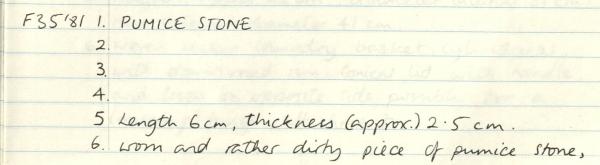 F35'81 1. PUMICE STONE
2.
3.
4.
5 Length 6cm, thickness (approx.) 2.5cm.
6. worn and rather dirty piece of pumice stone,